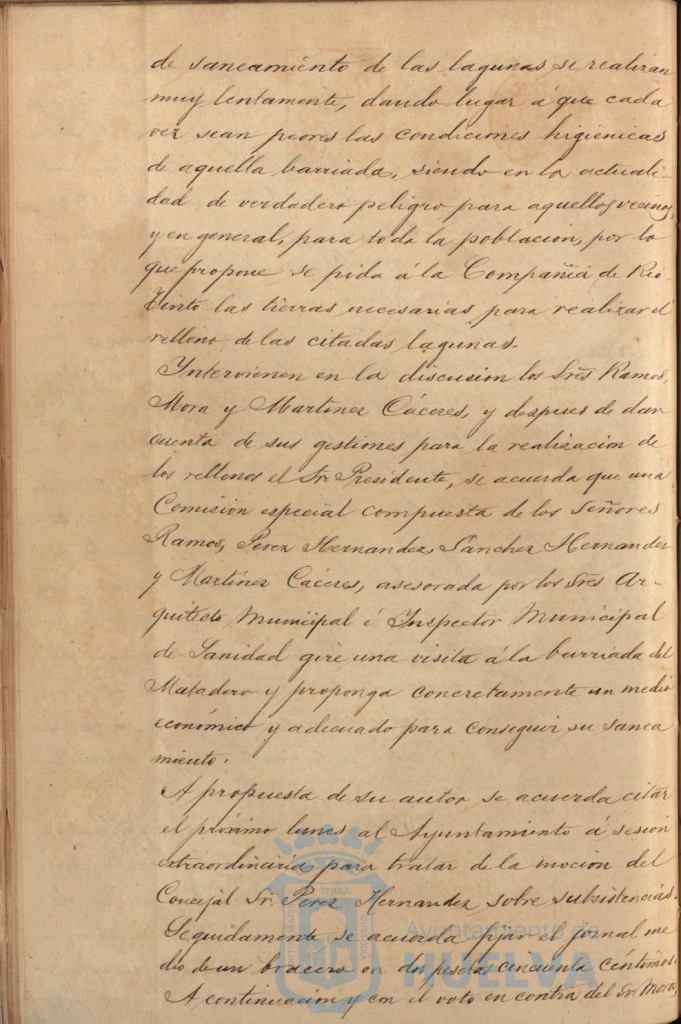 de saneamiento de las lagunas se realizan
muy lentamente, dando lugar á que cada
vez sean peores las condiciones higiénicas
de aquella barriada, siendo en la actuali-
dad de verdadero peligro para aquellos vecinos,
y en general, para toda la poblacion, por lo
que propone se pida á la Compañia de Rio-
Tinto las tierras necesarias para realizar el
relleno de las citadas lagunas.
Intervienen en la discusion los Sres Ramos,
Mora y Martinez Cáceres, y despues de dar
cuenta de sus gestiones para la realizacion de
los rellenos el Sr. Presidente, se acuerda que una
Comision especial compuesta de los Señores
Ramos, Perez Hernandez, Sánchez Hernandez
y Martínez Cáceres, asesorada por los Sres Ar-
quitecto Municipal é Inspector Municipal
de Sanidad gire una visita á la barriada del
Matadero y proponga concretamente un medio
económico y adecuado para conseguir su sanea
miento.
A propuesta de su autor se acuerda citar
el próximo lunes al Ayuntamiento á sesion
extraordinaria para tratar de la mocion del
Concejal Sr. Perez Hernandez, sobre subsistencias.
Seguidamente se acuerda fijar el jornal me
dio de un bracero en dos pesetas cincuenta céntimos.
A continuacion y con el voto en contra del Sr. Mora,
Ayuntamiento de
HUELVA